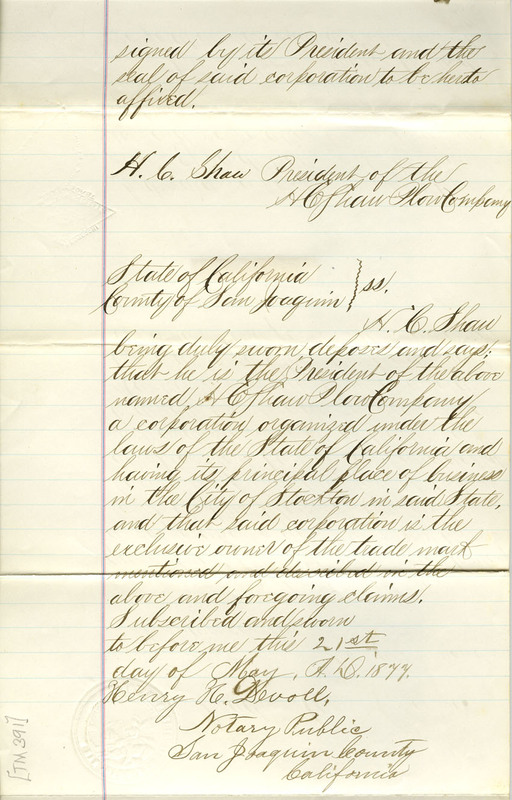 signed by its President and the
seal of said corporation to be hereto
affixed.
H. C. Shaw President of the
H C Shaw Plow Company
State of California
County of San Joaquin } ss.
H. C. Shaw
being duly sworn, deposes and says;
that he is the President of the above
named H C Shaw Plow Company
a corporation organized under the
laws of the State of California and
having its principal place of business
in the City of Stockton in said State,
and that said corporation is the
exclusive owner of the trade mark
mentioned and described in the
above and foregoing claims.
Subscribed and sworn
to before me this 21st
day of May, A.D. 1877.
Henry H. Devoll,
Notary Public
San Joaquin County
California
[TM 391]